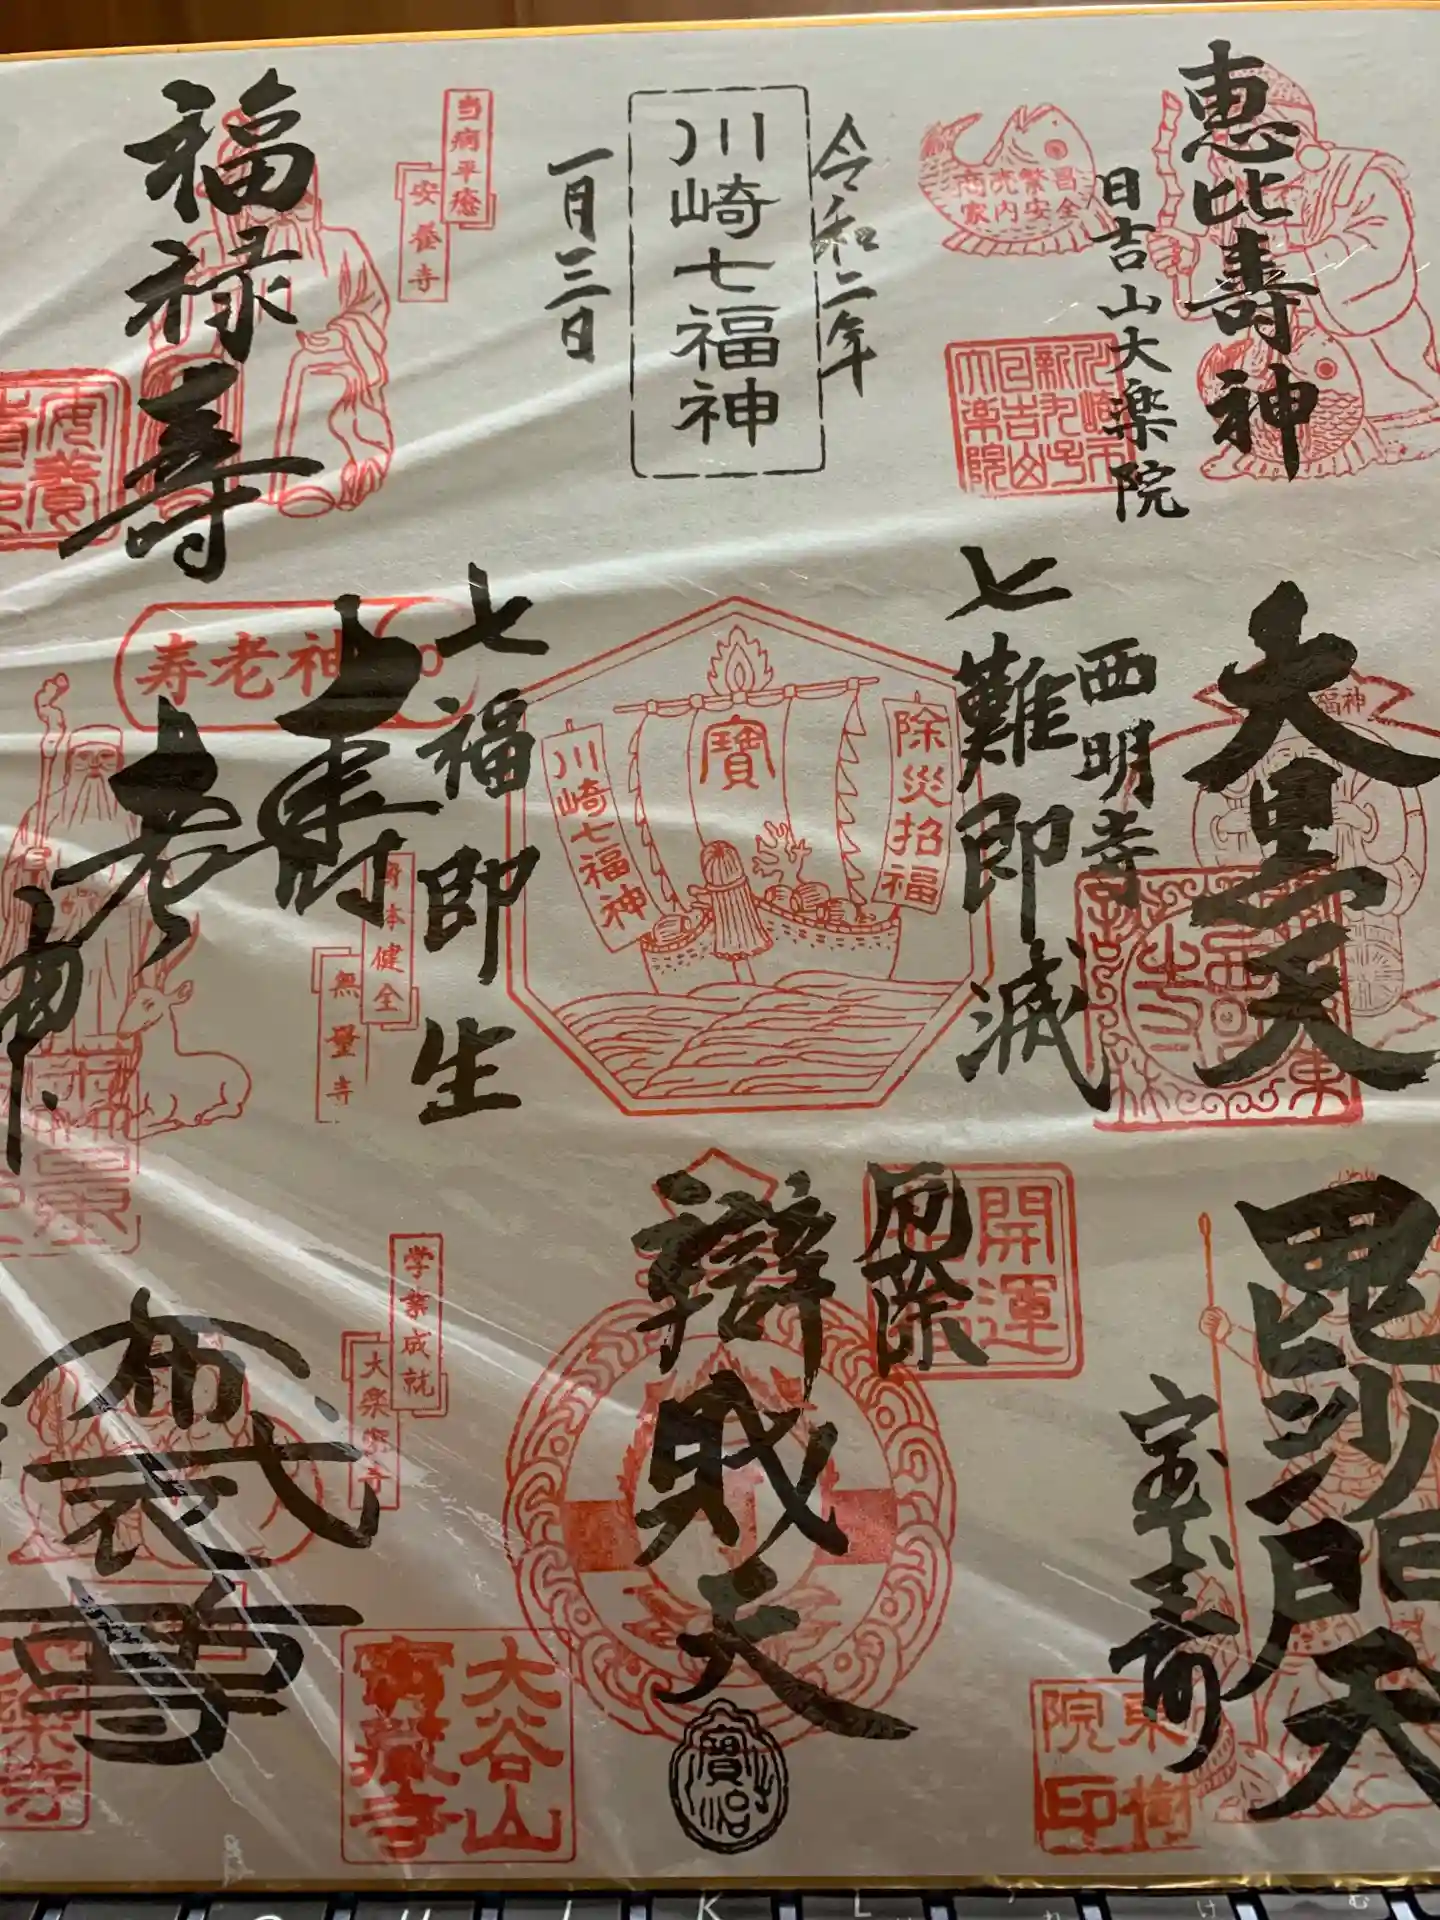 恵比寿神
日吉山大楽院
商売繁昌
家内安全
川崎市
新丸子
日吉山
大楽院
令和二年
川崎七福神
一月三日
当病平癒
安養寺
福禄寿
大黒天
福神
西明寺
七難即滅
除災招福
寶
川崎七福神
七福即生
寿老神
寿老神
身体健全
無量寺
毘沙門天
宝寿
東樹
院印
開運
厄除
辯財天
大谷山
寳蔵寺
学業成就
大楽密寺
布袋尊